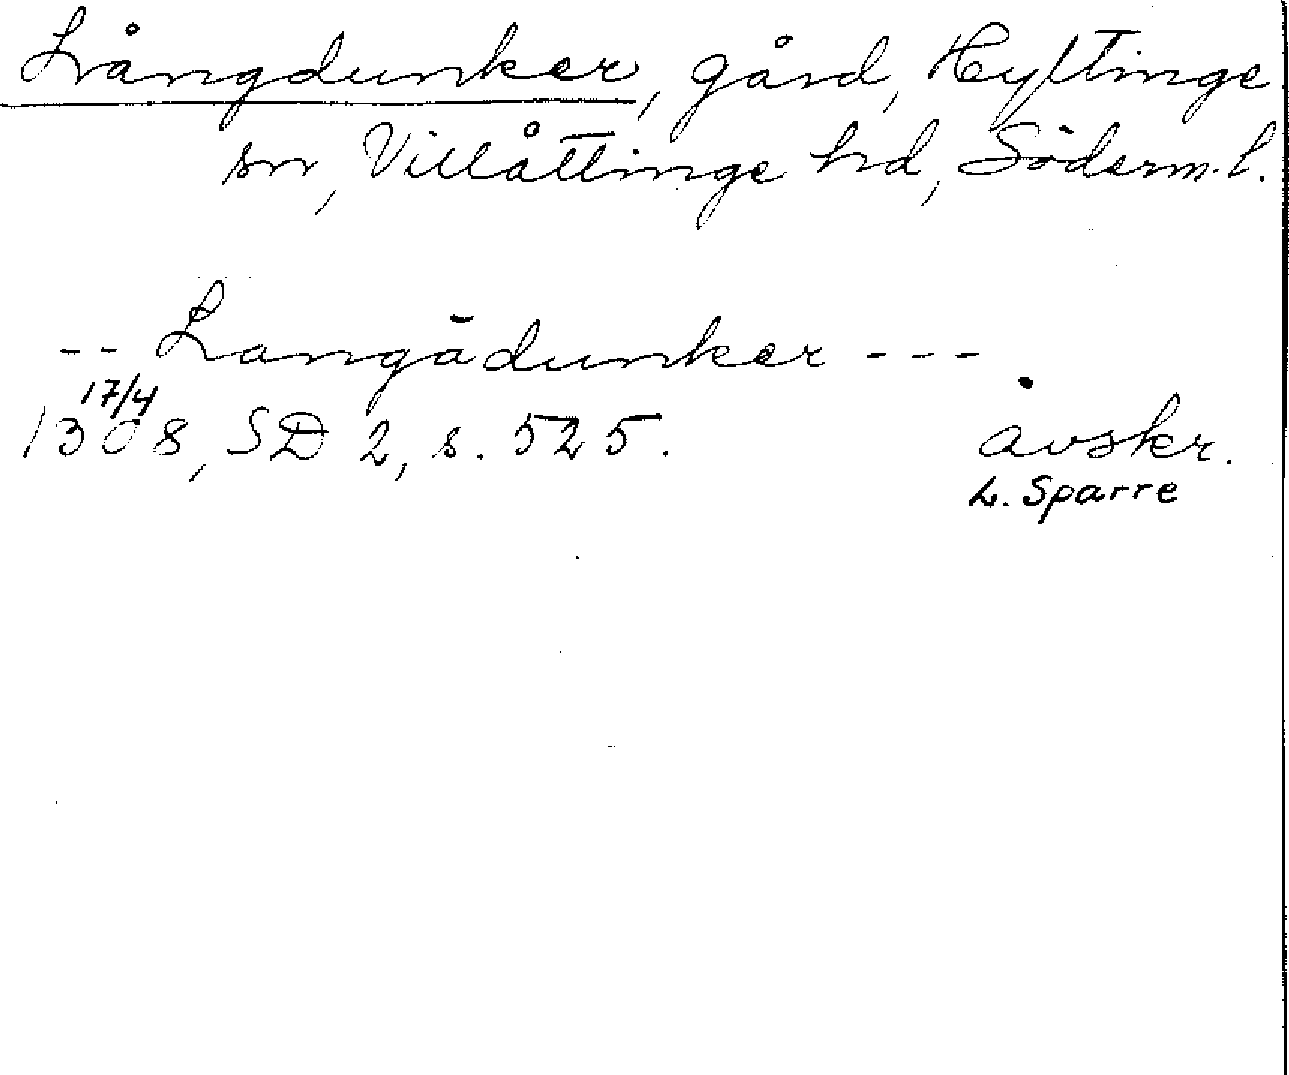 Långdunker, gård, Hyltinge
sn, Villåttinge hd, Söderm. l.
-- Langādunker ---
17/4
1308, SD 2, s. 525. avskr.
L. Sparre